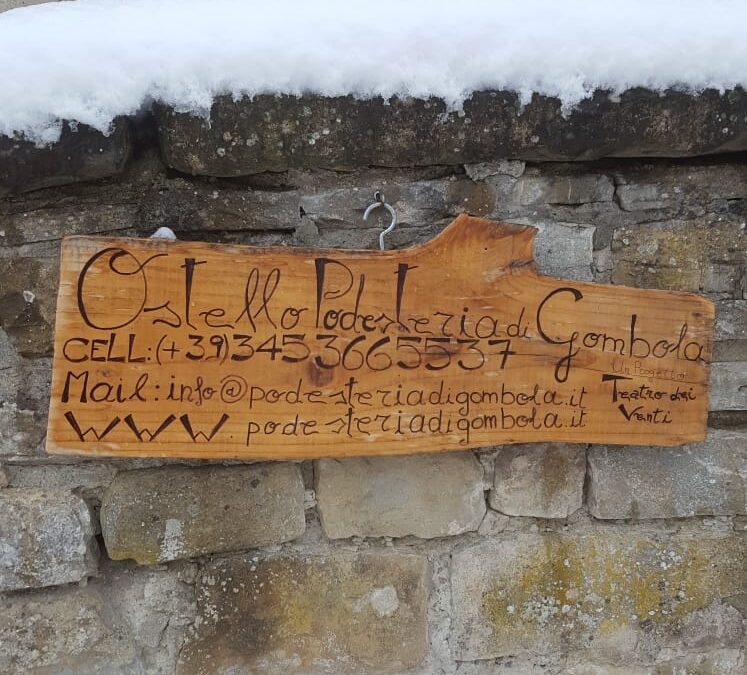 Ostello Podesteria di Gombola
CELL:(+39)3453665537
Mail: info@podesteriadigombola.it
www.podesteriadigombola.it
Un Progetto
Teatro dei
Venti